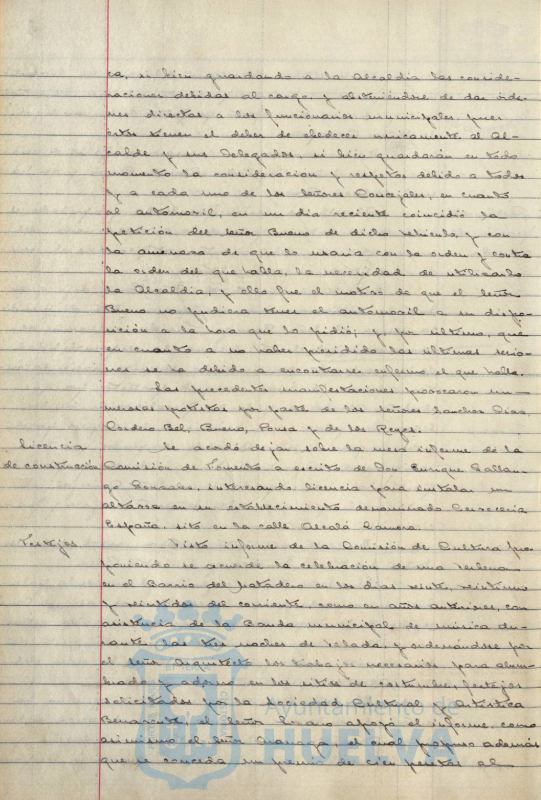 ca, si bien guardando a la Alcaldía las conside-
raciones debidas al cargo y absteniéndose de dar órde-
nes directas a los funcionarios municipales pues
estos tienen el deber de obedecer unicamente al Al-
calde y sus Delegados, si bien guardarán en todo
momento la consideración y respetos debido a todos
y a cada uno de los señores Concejales; en cuanto
al automovil, en un dia reciente coincidió la
petición del señor Bueno de dicho vehiculo y con
la amenaza de que lo usaria con la orden y contra
la orden del que habla, la necesidad de utilizarlo
la Alcaldía, y ello fue el motivo de que el señor
Bueno no pudiera tener el automovil a su dispo-
sición a la hora que lo pidió; y, por ultimo, que
en cuanto a no haber presidido las ultimas sesio-
nes se ha debido a encontrarse enfermo el que habla.
Las precedentes manifestaciones provocaron nu-
merosas protestas por parte de los señores Sanchez Diaz,
Cordero Bel, Bueno, Ponsa y de los Reyes.
Licencia
de construcción
Se acordó dejar sobre la mesa informe de la
Comisión de Fomento a escrito de Don Enrique Gallan-
go Gonzalez, interesando licencia para instalar un
altavoz en su establecimiento denominado Cerveceria
España, sito en la calle Alcalá Zamora.
Festejos
Visto informe de la Comisión de Cultura pro-
poniendo se acuerde la celebración de una Verbena
en el Barrio del Matadero en los dias veinte, veintiuno
y veintidos del corriente, como en años anteriores, con
asistencia de la Banda municipal de música du-
rante las tres noches de Velada, y ordenándose por
el señor Arquitecto los trabajos necesarios para alum-
brado y adorno en los sitios de costumbre, festejos
solicitados por la Sociedad Cultural y Artistica
Benavente, el señor apoyó el informe, como
asimismo el señor el cual propuso además
que se conceda un premio de cien pesetas al
Ayuntamiento de
HUELVA